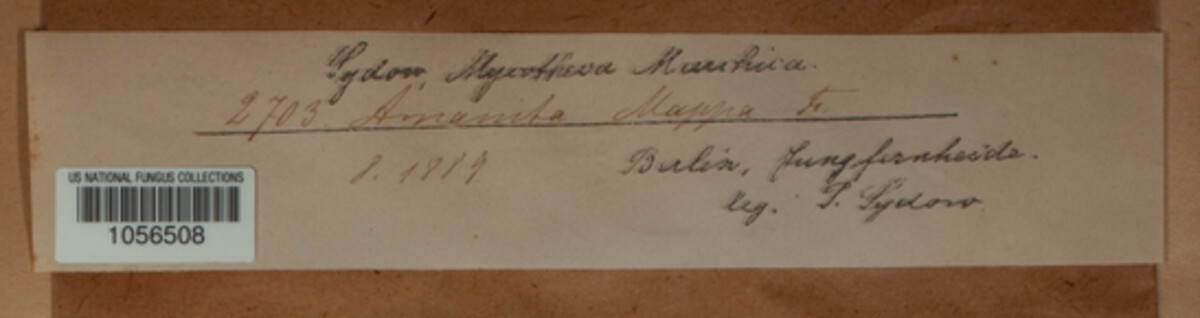 Sydow, Mycotheca Marchica.
2703. Amanita Mappa Fr.
8. 1889
Berlin, Jungfernheide.
leg. P. Sydow
US NATIONAL FUNGUS COLLECTIONS
1056508